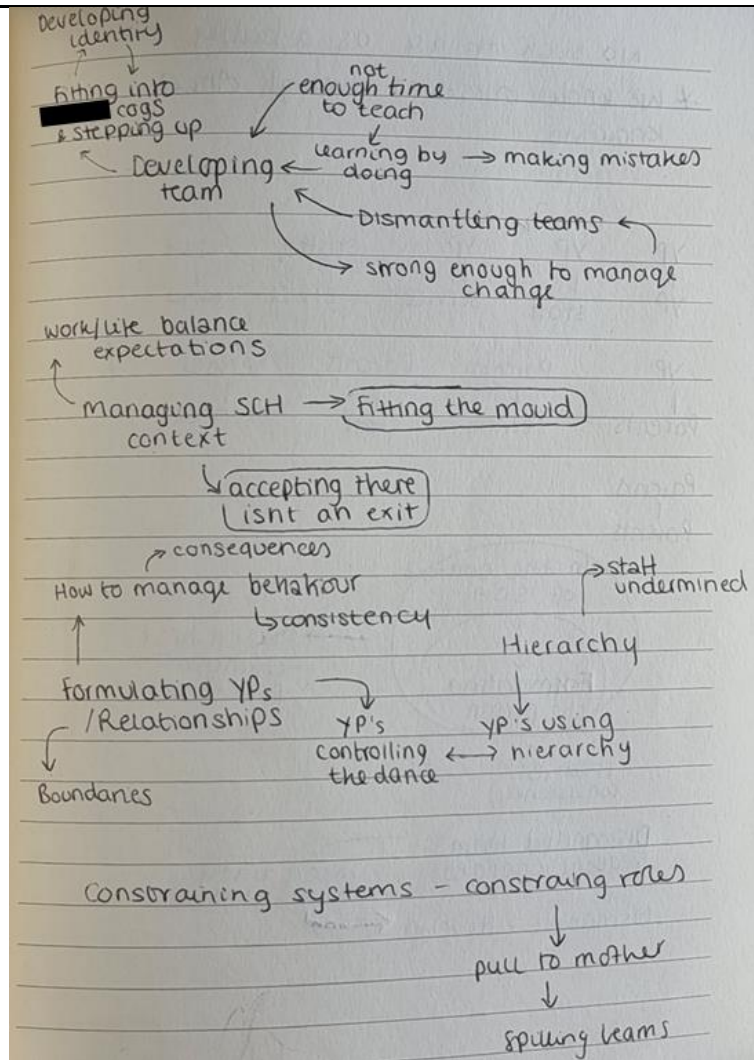 Developing
identity
Fitting into
cogs
& stepping up
not
enough time
to teach
Developing
team
learning by
doing
making mistakes
Dismantling teams
strong enough to manage
change
work/life balance
expectations
managing SCH
context
Fitting the mould
accepting there
isnt an exit
consequences
How to manage behaviour
consistency
staff
undermined
Hierarchy
Formulating YPs
/Relationships
YP's
controlling
the dance
YP's using
hierarchy
Boundaries
Constraining systems - constraing roles
pull to mother
teams